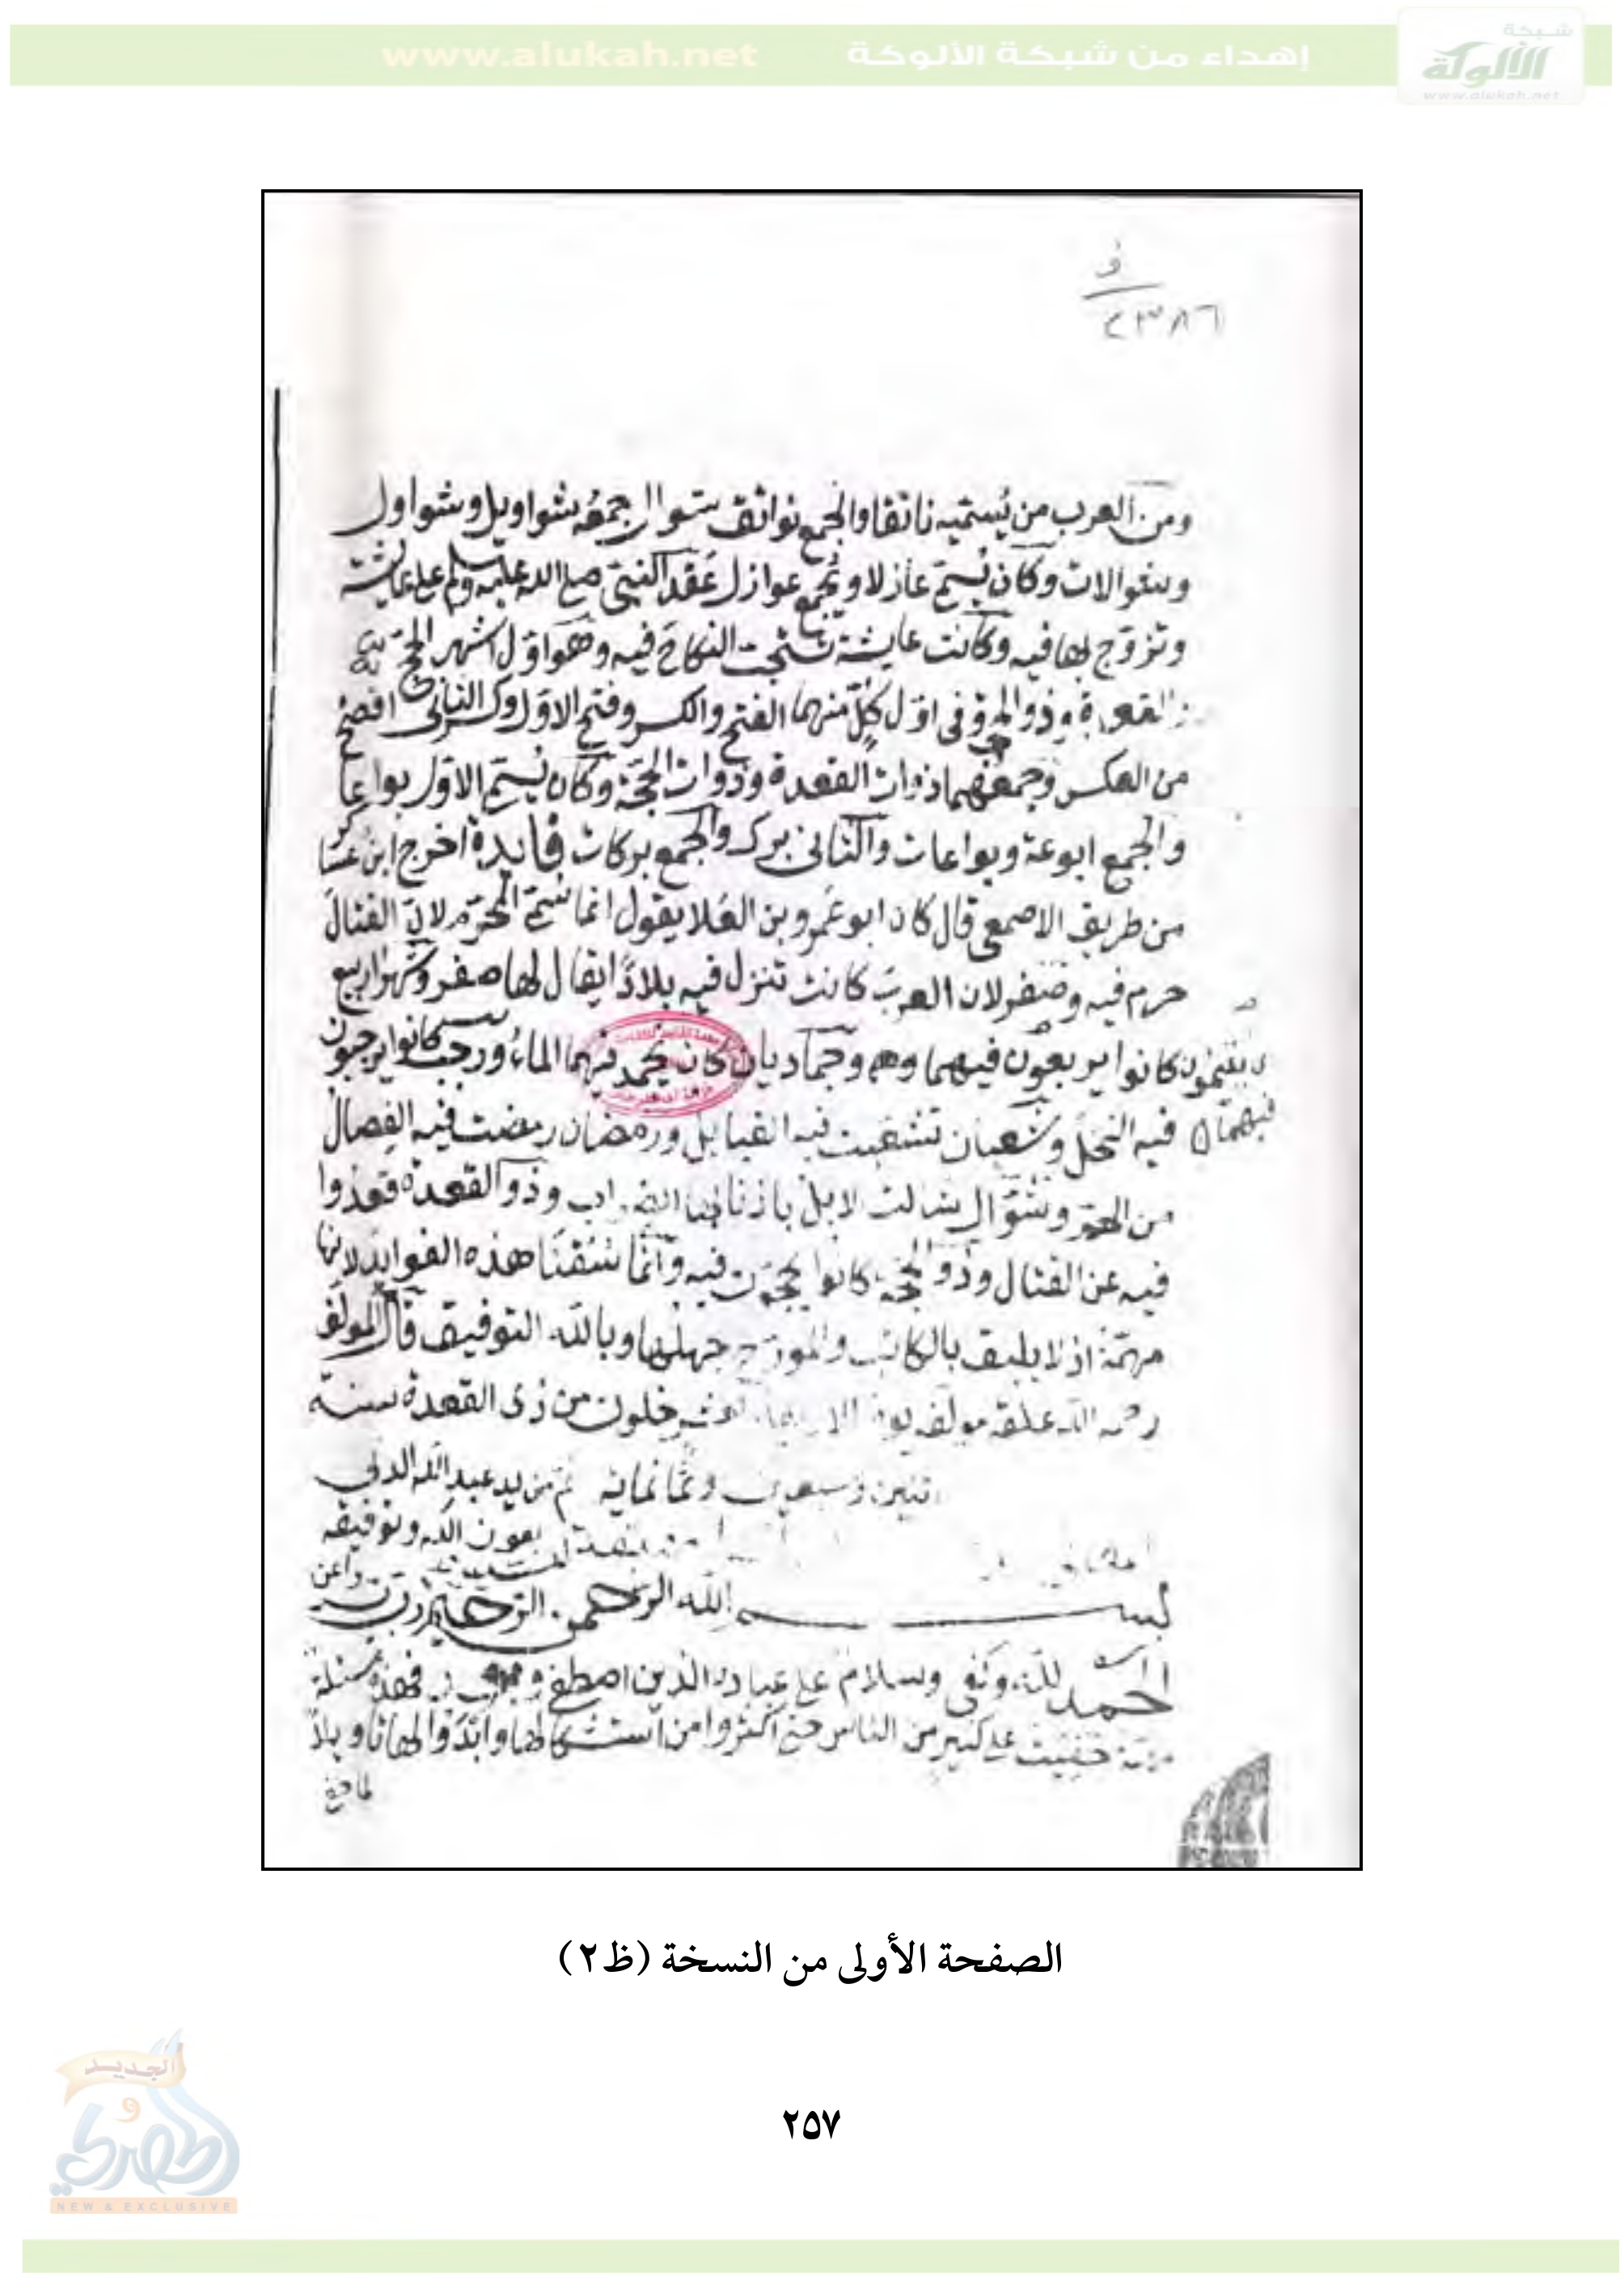 شبكة
الألوكة
www.alukah.net
إهداء من شبكة الألوكة www.alukah.net
و
٢٣٨٦
ومن العرب من يسميه ناتقا والجمع نواتق شوال جمعه شواويل وشواول
وشوالات وكان يسمى عاذلا ويجمع عواذل عقد النبي صلى الله عليه وسلم على عائشة
وتزوج بها فيه وكانت عايشة تستحب النكاح فيه وهو اول اشهر الحج
القعدة وذو الحجة وفي اول كل منهما الفتح والكسر وفتح الاول وكسر الثاني افصح
من العكس وجمعهما ذوات القعدة وذوات الحجة وكان يسمى الاول بواعا
والجمع ابوعة وبواعات والثاني برك والجمع بركات فايدة اخرج ابن عساكر
من طريق الاصمعي قال كان ابو عمرو بن العلا يقول انما سمي المحرم لان القتال
حرم فيه وصفر لان العرب كانت تنزل فيه بلادا يقال لها صفر وشهرا ربيع
كانوا يربعون فيهما وجماديان كان يجمد فيهما الماء ورجب كانوا يرجبون
فيه النخل وشعبان تشعبت فيه القبايل ورمضان رمضت فيه الفصال
من الحر وشوال شالت الابل باذنابها الضراب وذو القعدة قعدوا
فيه عن القتال وذو الحجة كانوا يحجون فيه وانما سقنا هذه الفوايد لانها
مهمة اذ لا يليق بالكاتب والمورخ جهلها وبالله التوفيق قال المولف
رحمه الله علقه مولفه يوم خلون من ذي القعدة سنة
وسبعين وثمانماية تم من يد عبد الله
بعون الله وتوفيقه
بسم الله الرحمن الرحيم رب يسر واعن
الحمد لله وكفى وسلام على عباده الذين اصطفى فهذه مسئلة
خفيت على كثير من الناس حتى اكثروا من استشكالها وابدوا لها تاويلا
الصفحة الأولى من النسخة (ظ٢)
٢٥٧
الجديد
و
الحصري
NEW & EXCLUSIVE